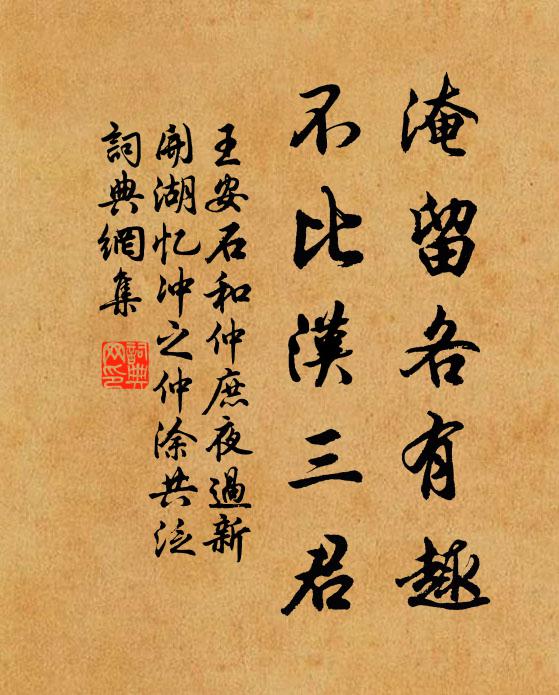 淹留各有趣
不比漢三君
王安石和仲庶夜過新
開湖忆冲之仲涂共泛
詞典網集
詞典
网印